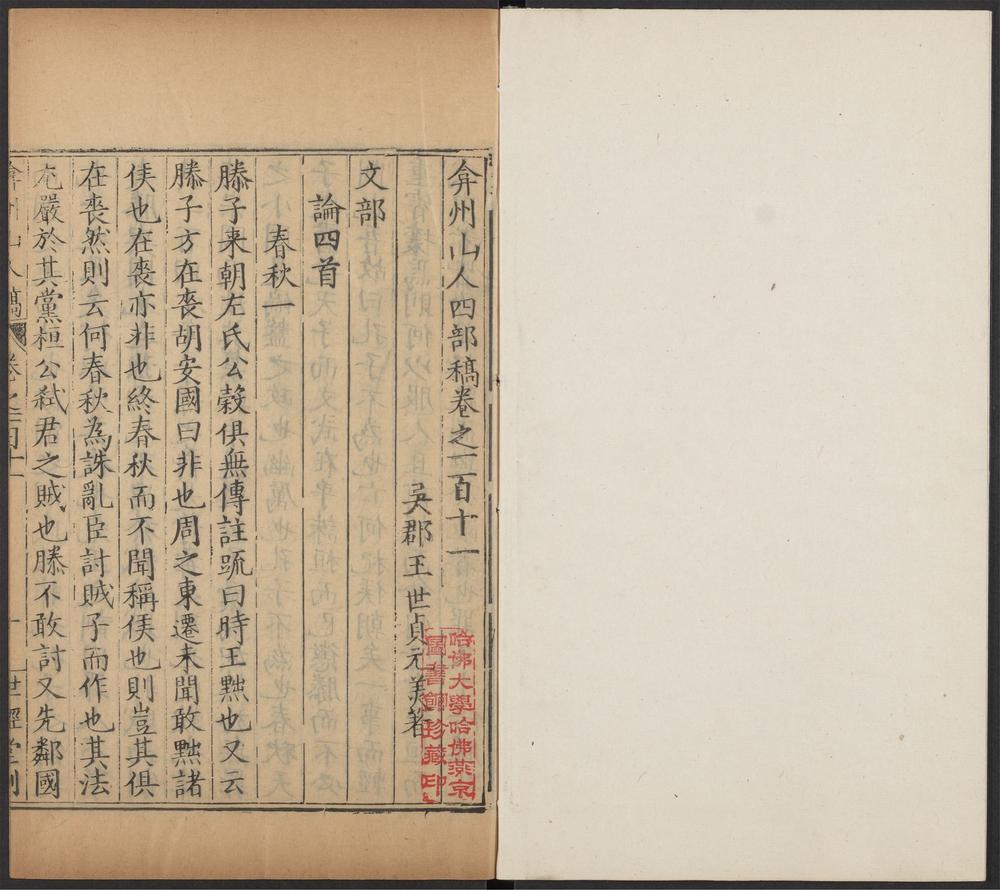 弇州山人四部稿卷之一百十一
吳郡王世貞元美著
文部
論四首
春秋一
滕子来朝左氏公穀俱無傳註䟽曰時王黜也又云
滕子方在丧胡安國曰非也周之東遷未聞敢黜諸
侯也在丧亦非也終春秋而不聞稱侯也則豈其俱
在丧然則云何春秋為誅亂臣討賊子而作也其法
尤嚴於其黨桓公弑君之賊也滕不敢討又先鄰國
弇州山人藁 卷之一百十一 世經堂刻
哈佛大學哈佛燕京
圖書館珍藏印